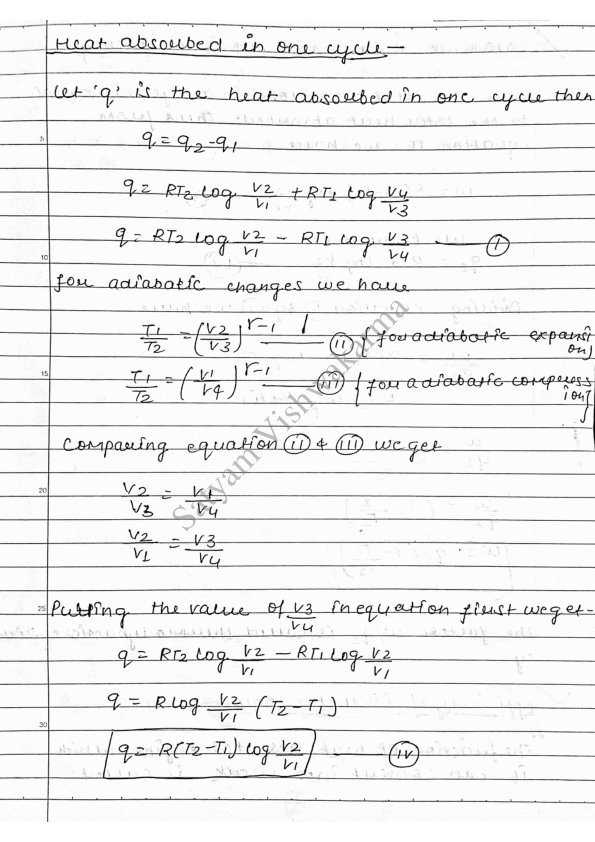 Heat absorbed in one cycle—
Let 'q' is the heat absorbed in one cycle then
q = q2-q1
q = RT2 log V2/V1 + RT1 log V4/V3
q = RT2 log V2/V1 - RT1 log V3/V4 —— (i)
for adiabatic changes we have
T1/T2 = (V2/V3)^r-1 —— (ii) {for adiabatic expansi
on}
T1/T2 = (V1/V4)^r-1 —— (iii) {for adiabatic compress
ion}
Comparing equation (ii) & (iii) we get
V2/V3 = V1/V4
V2/V1 = V3/V4
Putting the value of V3/V4 in equation first we get-
q = RT2 log V2/V1 - RT1 log V2/V1
q = R log V2/V1 (T2-T1)
q = R(T2-T1) log V2/V1 —— (iv)
5
10
15
20
25
30
Satyam Vishwakarma